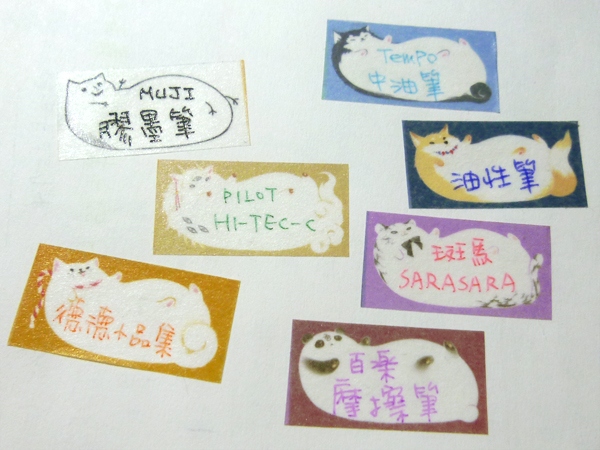 MUJI
膠墨筆
Tempo
中油筆
油性筆
PILOT
HI-TEC-C
斑馬
SARASARA
德德小品集
百樂
摩擦筆